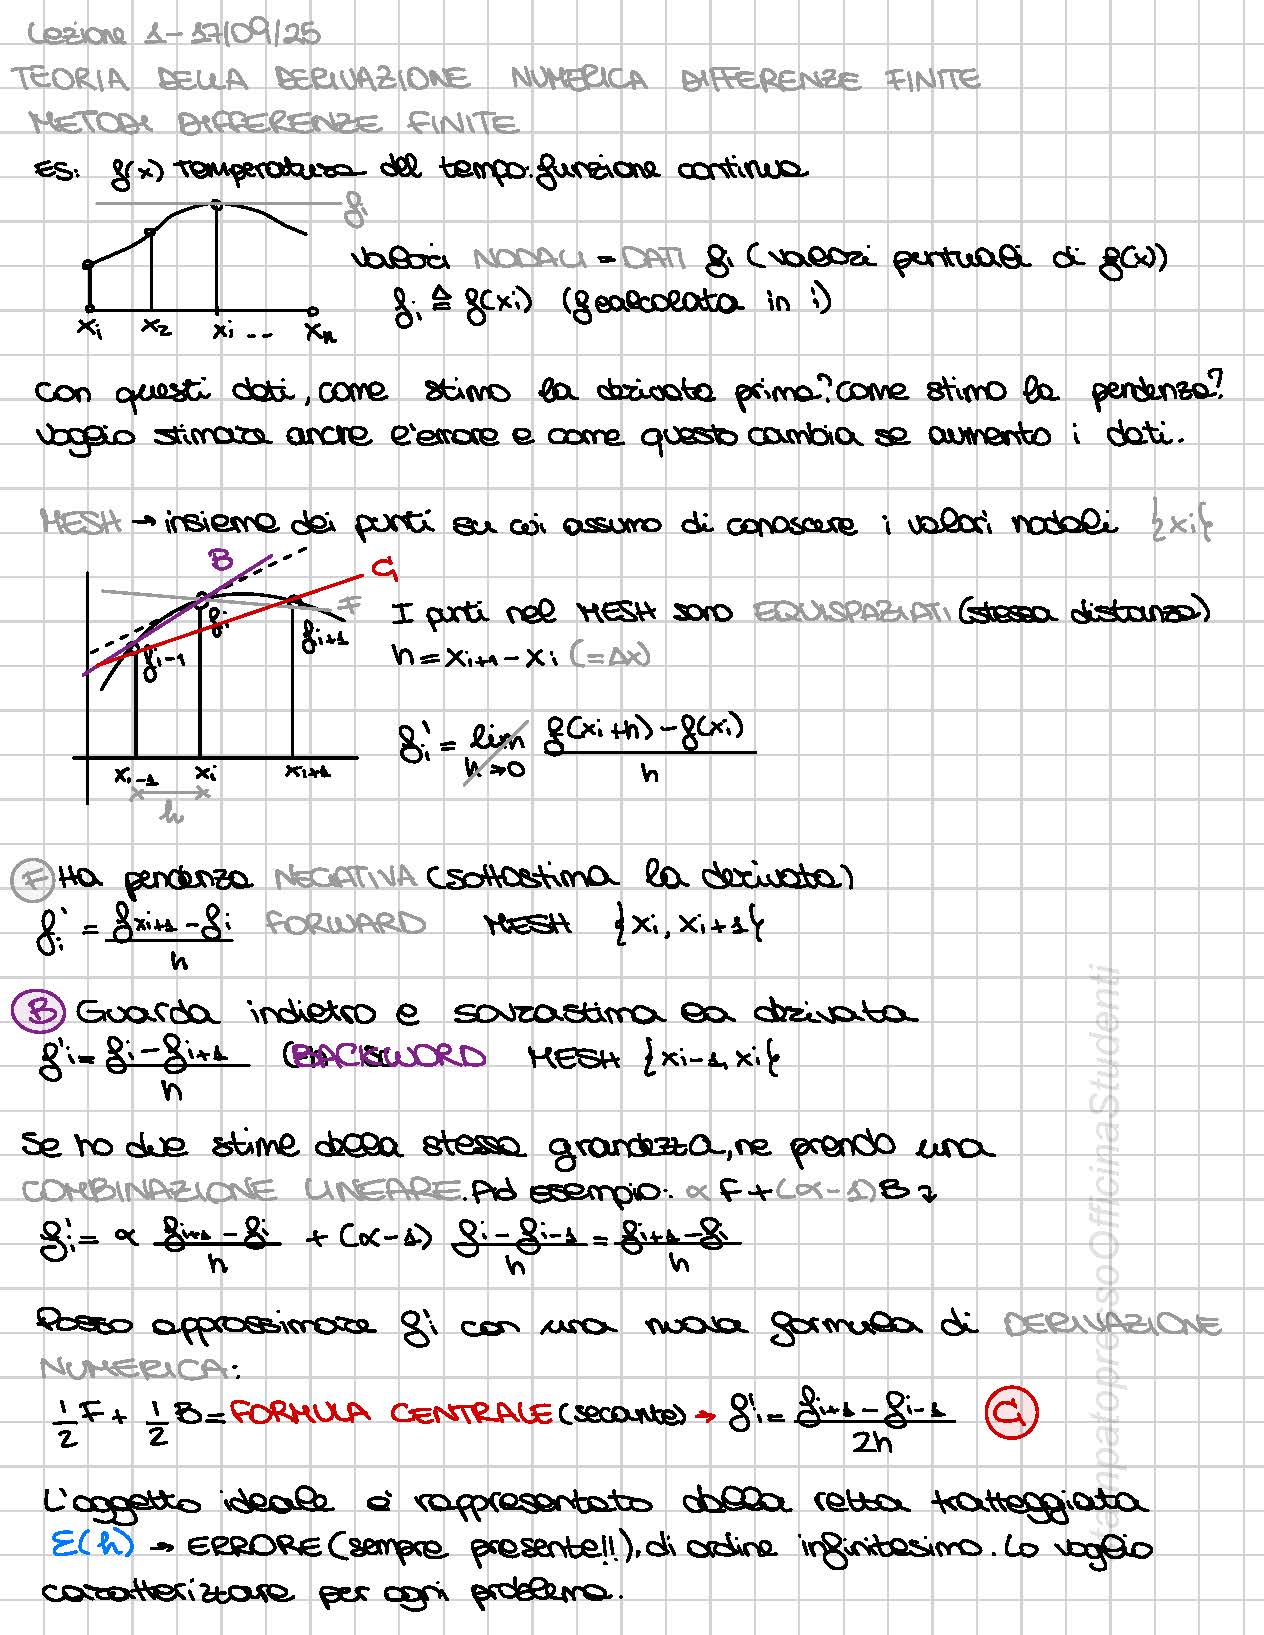 Lezione 1 - 17/09/25
TEORIA DELLA DERIVAZIONE NUMERICA DIFFERENZE FINITE
METODI DIFFERENZE FINITE
ES: f(x) Temperatura del tempo: funzione continua
fi
valori NODALI = DATI fi (valori puntuali di f(x))
fi ≜ f(xi) (f calcolata in i)
xi x2 xi -- xn
Con questi dati, come stimo la derivata prima? Come stimo la pendenza?
Voglio stimare anche l'errore e come questo cambia se aumento i dati.
MESH → insieme dei punti su cui assumo di conoscere i valori nodali {xi}
B
C
F
fi-1 fi fi+1
I punti nel MESH sono EQUISPAZIATI (stessa distanza)
h = xi+1 - xi (= Δx)
fi' = lim h→0 f(xi+h) - f(xi) / h
xi-1 xi xi+1
h
F Ha pendenza NEGATIVA (sottostima la derivata)
fi' = fxi+1 - fi / h FORWARD MESH {xi, xi+1}
B Guarda indietro e sovrastima la derivata
f'i = fi - fi+1 / h BACKWORD MESH {xi-1, xi}
Se ho due stime della stessa grandezza, ne prendo una
COMBINAZIONE LINEARE. Ad esempio: α F + (α-1) B
fi' = α fi+1 - fi / h + (α-1) fi - fi-1 / h = fi+1 - fi / h
Posso approssimare fi' con una nuova formula di DERIVAZIONE
NUMERICA:
1/2 F + 1/2 B = FORMULA CENTRALE (secante) → f'i = fi+1 - fi-1 / 2h C
L'oggetto ideale è rappresentato dalla retta tratteggiata
E(h) → ERRORE (sempre presente!!), di ordine infinitesimo. Lo voglio
caratterizzare per ogni problema.
stampato presso OfficinaStudenti